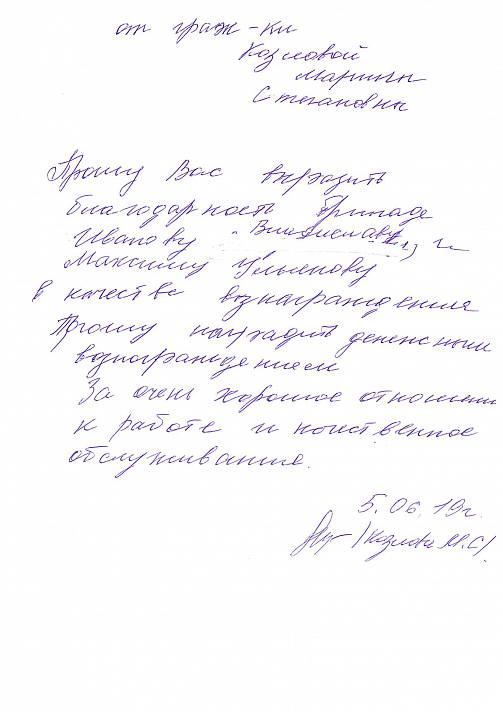 от граж-ки
Козловой
Марины
Степановны
Прошу Вас выразить
благодарность бригаде
Иванову Вячеславу и
Максиму Ульянову
в качестве вознаграждения
Прошу наградить денежным
вознаграждением
За очень хорошое отношение
к работе и качественное
обслуживание.
5.06.19г.
/Козлова М.С/